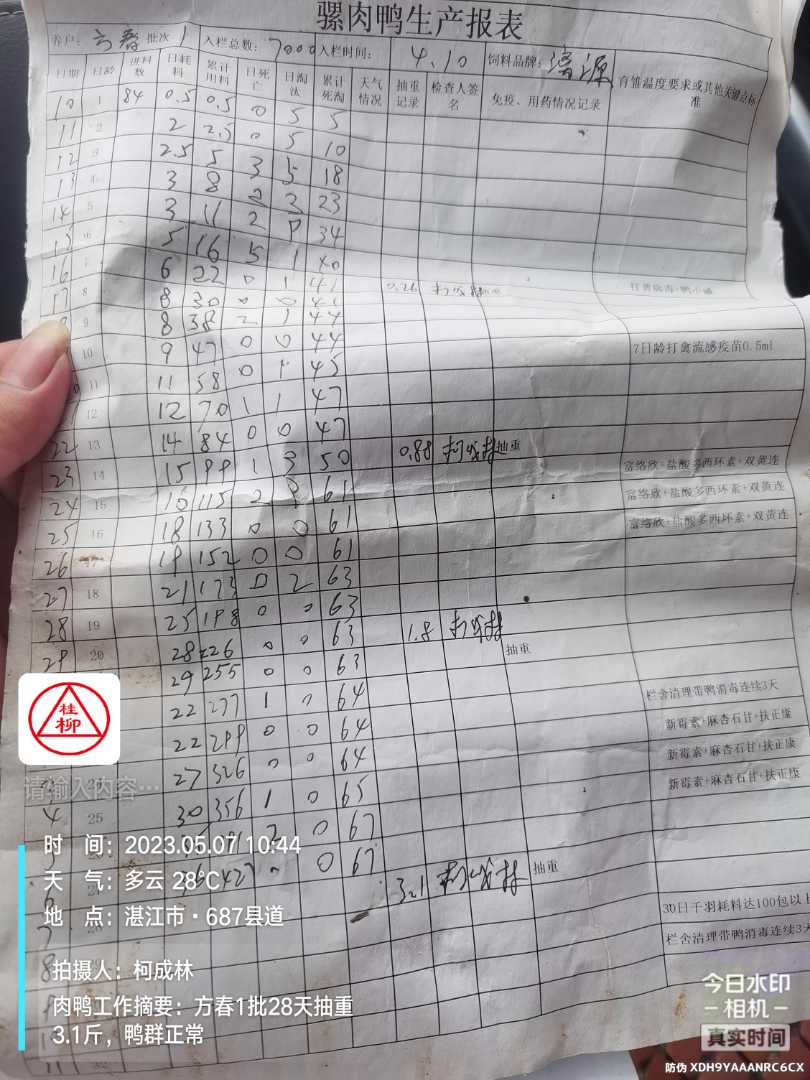 骡肉鸭生产报表
养户: 方春 批次 1 入栏总数: 7000 入栏时间: 4.10 饲料品牌:
日期 日龄 进料数 日耗料 累计用料 日死亡 日淘汰 累计死淘 天气情况 抽重记录 检查人签名 免疫、用药情况记录 育雏温度要求或其他关键点标准
10 1 84 0.5 0.5 0 5 5
11 2 2 2.5 0 5 10
12 3 2.5 5 3 5 18
13 4 3 8 2 3 23
14 5 3 11 2 34
15 6 5 16 5 1 40
16 7 6 22 0 1 41
17 8 8 30 0 0 41 0.26
9 8 38 2 1 44
10 9 47 0 0 44 7日龄打禽流感疫苗0.5ml
11 11 58 0 1 45
12 12 70 1 1 47
22 13 14 84 0 0 47
23 14 15 99 1 3 50 0.88 抽重 富络欣+盐酸多西环素+双黄连
24 15 16 115 2 61 富络欣+盐酸多西环素+双黄连
25 16 18 133 0 0 61 富络欣+盐酸多西环素+双黄连
26 19 152 0 0 61
27 18 21 173 0 2 63
28 19 25 198 0 0 63
29 20 28 226 0 0 63 1.8 抽重
29 255 0 0 63
22 277 1 0 64 栏舍清理带鸭消毒连续3天
22 299 0 0 64 新霉素+麻杏石甘+扶正康
27 326 0 0 64 新霉素+麻杏石甘+扶正康
4 25 30 356 1 0 65 新霉素+麻杏石甘+扶正康
2 0 67
427 0 67 3.1 抽重
6
7 30日千羽耗料达100包以上
8 栏舍清理带鸭消毒连续3天
11 32
桂柳
请输入内容…
时 间: 2023.05.07 10:44
天 气: 多云 28℃
地 点: 湛江市·687县道
拍摄人: 柯成林
肉鸭工作摘要: 方春1批28天抽重
3.1斤，鸭群正常
今日水印
-相机-
真实时间
防伪 XDH9YAAANRC6CX